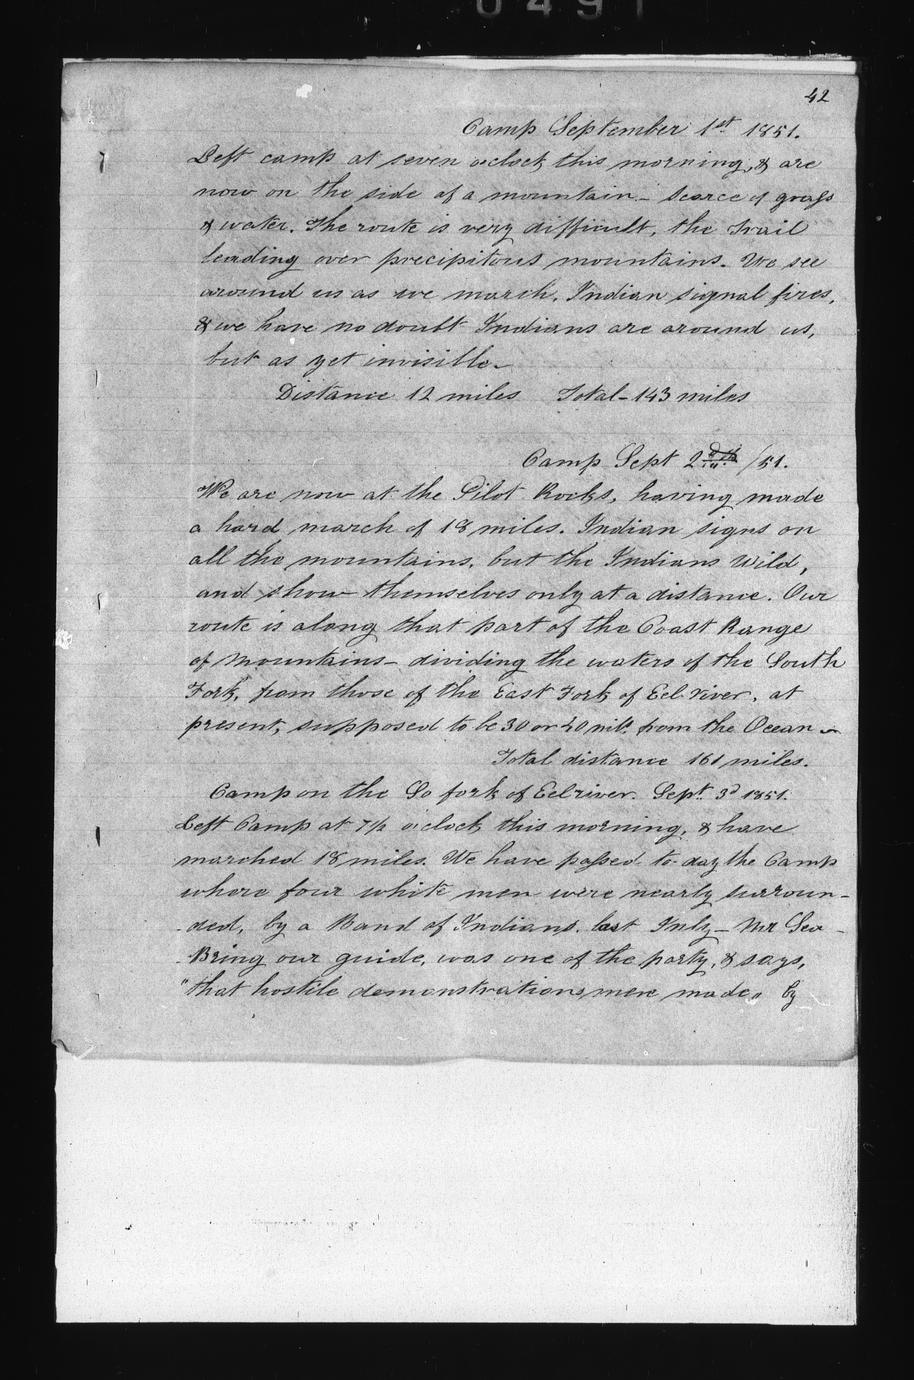 0491
42
Camp September 1st 1851.
Left camp at seven oclock this morning, & are
now on the side of a mountain - scarce of grass
& water. The route is very difficult, the trail
leading over precipitous mountains. We see
around us as we march, Indian signal fires,
& we have no doubt Indians are around us,
but as yet invisible -
Distance 12 miles Total - 143 miles
Camp Sept 2nd /51.
We are now at the Pilot Rocks, having made
a hard march of 18 miles. Indian signs on
all the mountains, but the Indians Wild,
and show themselves only at a distance. Our
route is along that part of the Coast Range
of Mountains - dividing the waters of the South
Fork, from those of the East Fork of Eel river, at
present, supposed to be 30 or 40 mils. from the Ocean -
Total distance 161 miles.
Camp on the So fork of Eel river. Sept. 3d 1851.
Left Camp at 7½ oclock this morning, & have
marched 18 miles. We have passed to-day the Camp
where four white men were nearly surroun-
-ded, by a Band of Indians. last July - Mr Sea-
-Bring our guide, was one of the party, & says,
"that hostile demonstrations were made" by